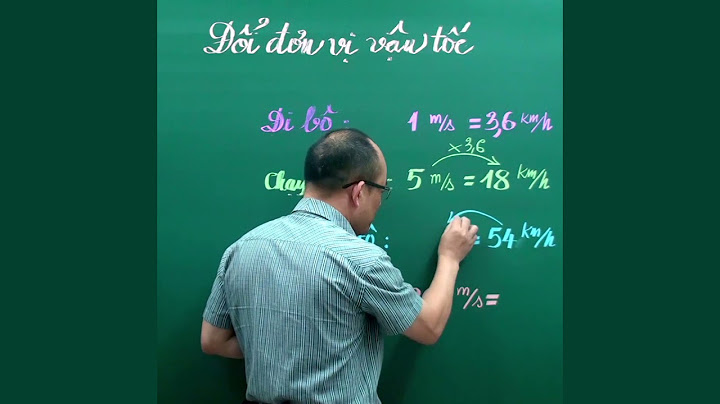 Đổi đơn vị vận tốc
Đi bộ : 1 m/s = 3,6 km/h
x 3,6
Chạy : 5 m/s = 18 km/h
: = 54 km/h
m/s =